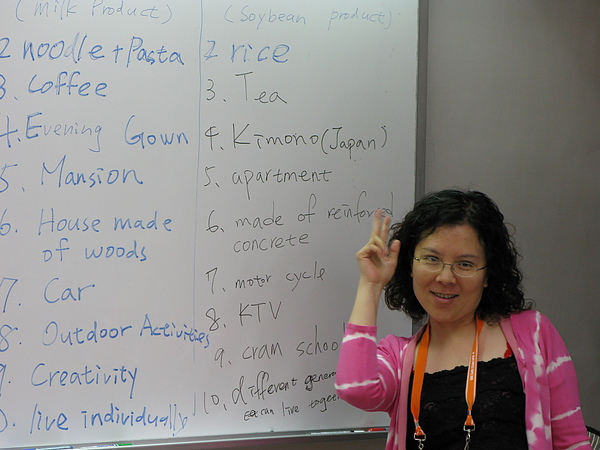 (Milk Product)
2 noodle + Pasta
3. Coffee
4. Evening Gown
5. Mansion
6. House made
of woods
7. Car
8. Outdoor Activities
9. Creativity
0. live individually
(Soybean product)
2 rice
3. Tea
4. Kimono (Japan)
5. apartment
6. made of reinforced
concrete
7. motor cycle
8. KTV
9. cram schoo
10. different genera
can live togeth